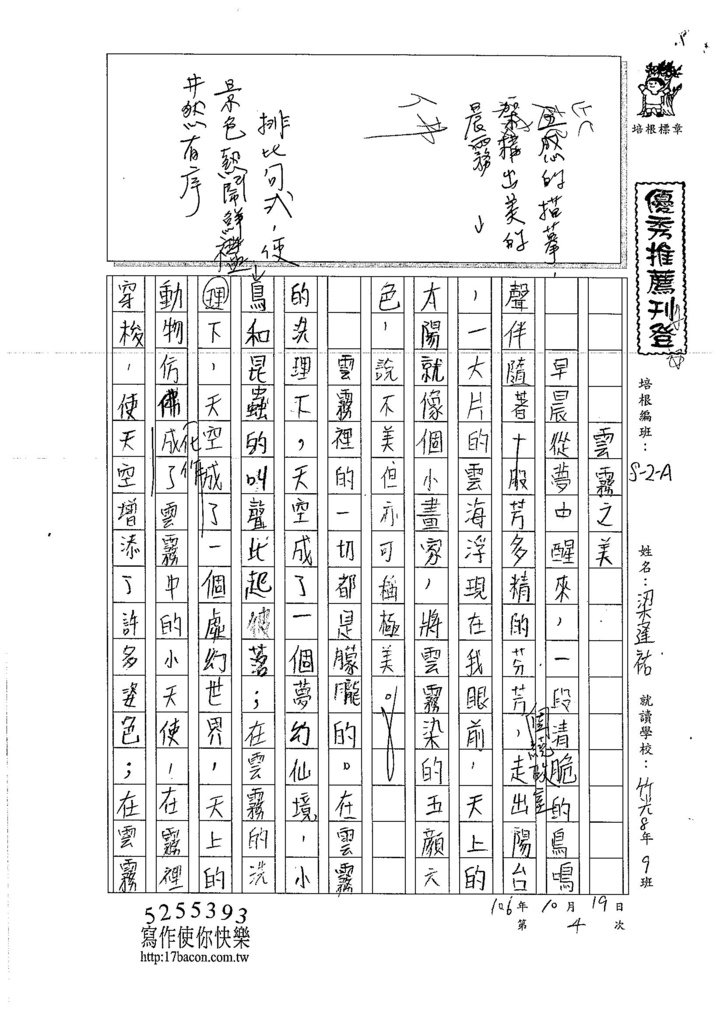 培根標章
優秀推薦刊登
培根編班：S-2-A
姓名：梁達祐
就讀學校：竹光8年9班
106年10月19日
第4次
的描摹，
架構出美的
晨霧↓
排比句式，使
景色熱鬧鮮
井然有序
雲霧之美
早晨從夢中醒來，一段清脆的鳥鳴
聲伴隨著十股芳多精的芬芳，走出陽台
，一大片的雲海浮現在我眼前，天上的
太陽就像個小畫家，將雲霧染的五顏六
色，說不美但亦可稱極美。
雲霧裡的一切都是朦朧的。在雲霧
的洗理下，天空成了一個夢幻仙境，小
鳥和昆蟲的叫聲此起彼落；在雲霧的洗
理下，天空成了一個虛幻世界，天上的
動物仿佛成了雲霧中的小天使，在霧裡
化作
穿梭，使天空增添了許多姿色；在雲霧
5255393
寫作使你快樂
http:17bacon.com.tw